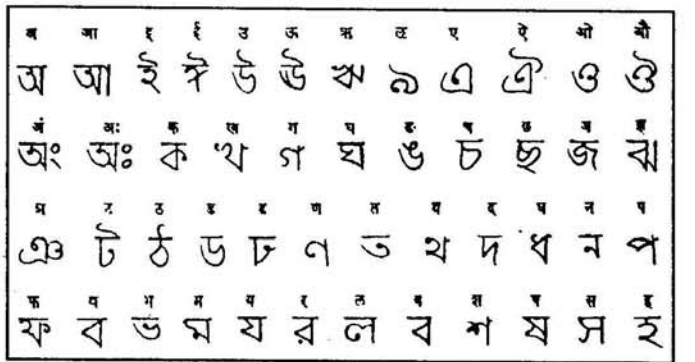 अ आ इ ई उ ऊ ऋ ऌ ए ऐ ओ औ
অ আ ই ঈ উ ঊ ঋ ঌ এ ঐ ও ঔ
अं अः क ख ग घ ङ च छ ज झ
অং অঃ ক খ গ ঘ ঙ চ ছ জ ঝ
ञ ट ठ ड ढ ण त थ द ध न प
ঞ ট ঠ ড ঢ ণ ত থ দ ধ ন প
फ व भ म य र ल व श ष स ह
ফ ব ভ ম য র ল ব শ ষ স হ